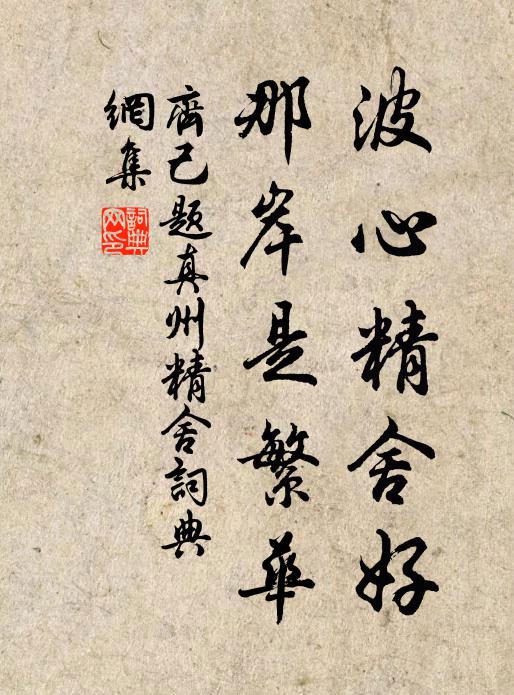 波心精舍好
那岸是繁華
齊己題真州精舍詞典
網集
詞典網印